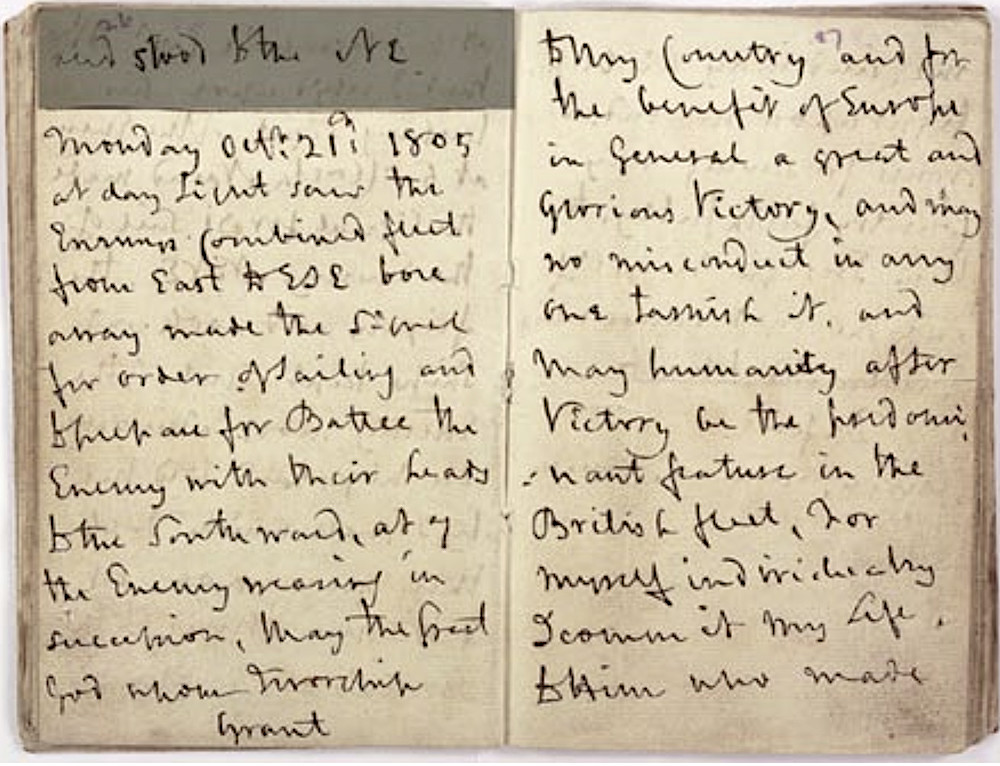 26
and stood to the NE
Monday Octr. 21st 1805
at day Light saw the
Enemys Combined fleet
from East to ESE bore
away made the Signal
for order of Sailing and
to prepare for Battle the
Enemy with their heads
to the Southward, at 7
the Enemy wearing in
succession, May the Great
God whom I worship
Grant
27
to my Country and for
the benefit of Europe
in General a great and
Glorious Victory, and may
no misconduct in any
one tarnish it, and
may humanity after
Victory be the predomi
-nant feature in the
British fleet, For
myself individually
I commit my Life
to Him who made